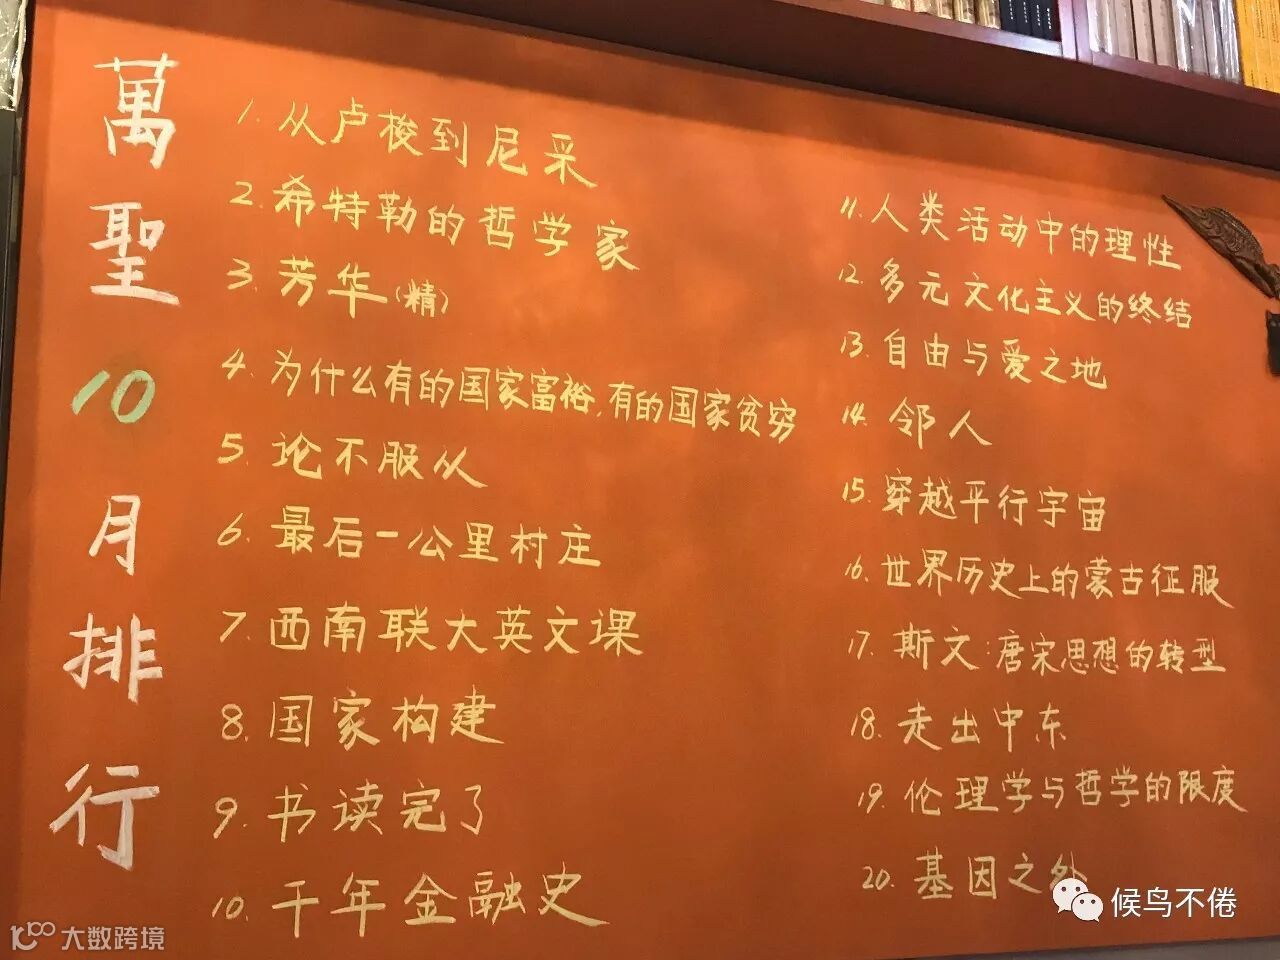 萬聖10月排行
1. 从卢梭到尼采
2. 希特勒的哲学家
3. 芳华(精)
4. 为什么有的国家富裕,有的国家贫穷
5. 论不服从
6. 最后一公里村庄
7. 西南联大英文课
8. 国家构建
9. 书读完了
10. 千年金融史
11. 人类活动中的理性
12. 多元文化主义的终结
13. 自由与爱之地
14. 邻人
15. 穿越平行宇宙
16. 世界历史上的蒙古征服
17. 斯文:唐宋思想的转型
18. 走出中东
19. 伦理学与哲学的限度
20. 基因之外
候鸟不倦
大数跨境